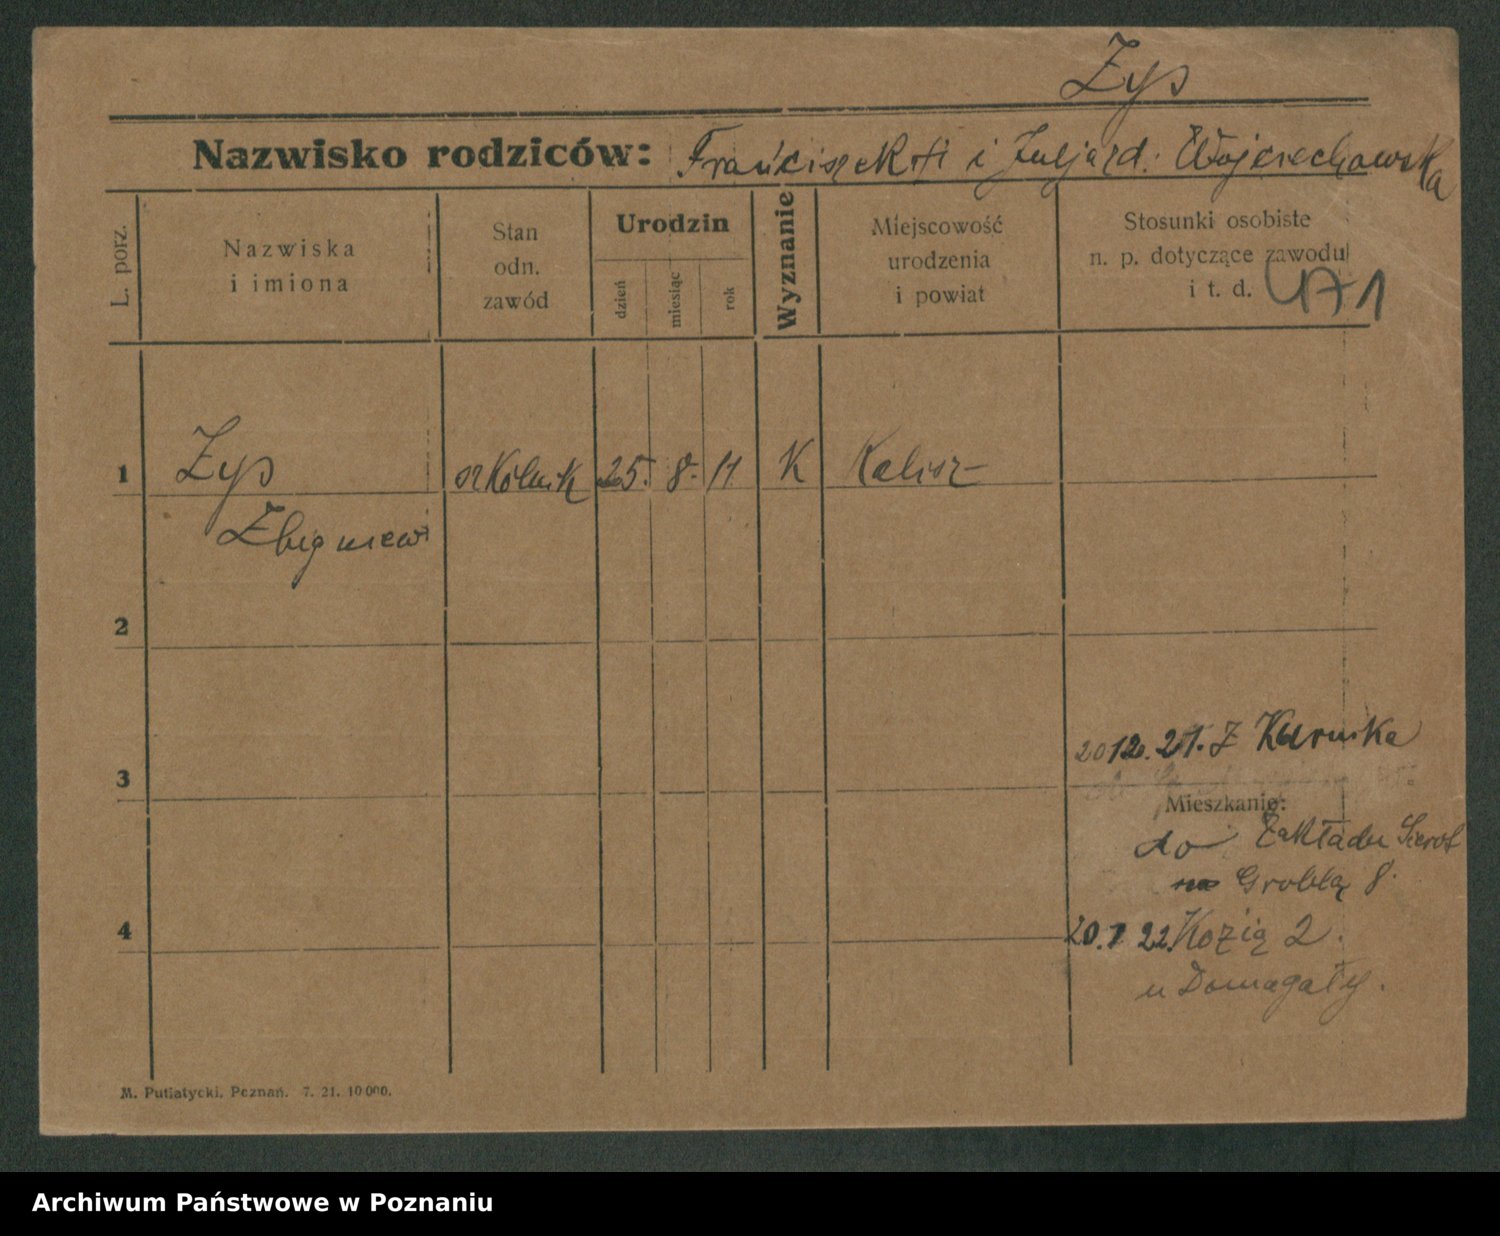 Zys
Nazwisko rodziców: Franciszek † i Julja zd. Wojciechowska
L. porz.
Nazwiska
i imiona
Stan
odn.
zawód
Urodzin
dzień
miesiąc
rok
Wyznanie
Miejscowość
urodzenia
i powiat
Stosunki osobiste
n. p. dotyczące zawodu
i t. d. 471
1 Zys szkolnik 25. 8. 11 K Kalisz
Zbigniew
2
2012. 21. Z
3
Mieszkanie:
do Zakładu Sierot
na Groblą 8.
4
20.1 22. Kozią 2.
u Domagały.
M. Putiatycki, Poznań. 7. 21. 10 000.
Archiwum Państwowe w Poznaniu